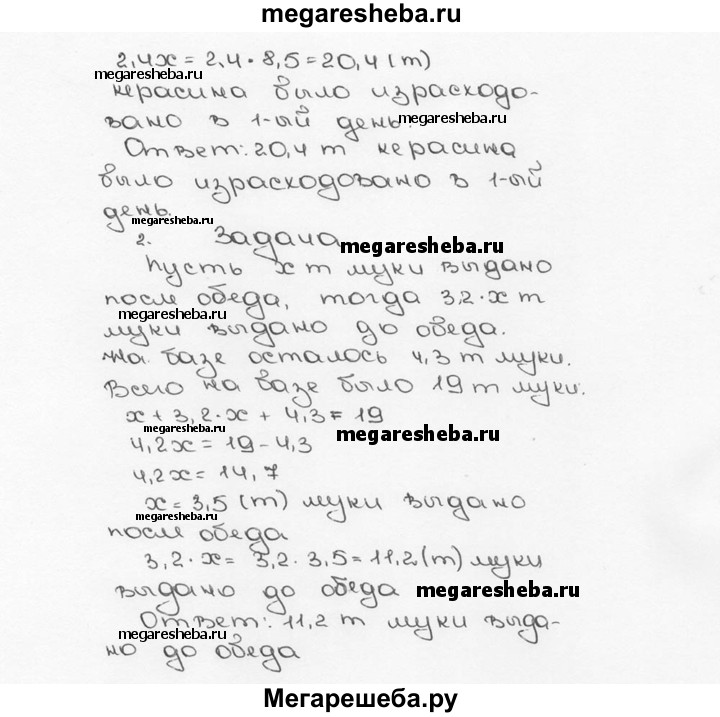 megaresheba.ru
2,4x = 2,4 • 8,5 = 20,4 (т)
megaresheba.ru
керасина было израсходо-
вано в 1-ый день.
megaresheba.ru
Ответ: 20,4 т керасина
было израсходовано в 1-ый
день.
megaresheba.ru
2. Задача
megaresheba.ru
Пусть x т муки выдано
после обеда, тогда 3,2 • x т
megaresheba.ru
муки выдано до обеда.
На базе осталось 4,3 т муки.
Всего на базе было 19 т муки.
x + 3,2 • x + 4,3 = 19
megaresheba.ru
4,2x = 19 - 4,3
megaresheba.ru
4,2x = 14,7
x = 3,5 (т) муки выдано
megaresheba.ru
после обеда
3,2 • x = 3,2 • 3,5 = 11,2 (т) муки
выдано до обеда
megaresheba.ru
Ответ: 11,2 т муки выда-
megaresheba.ru
но до обеда
Мегарешеба.ру